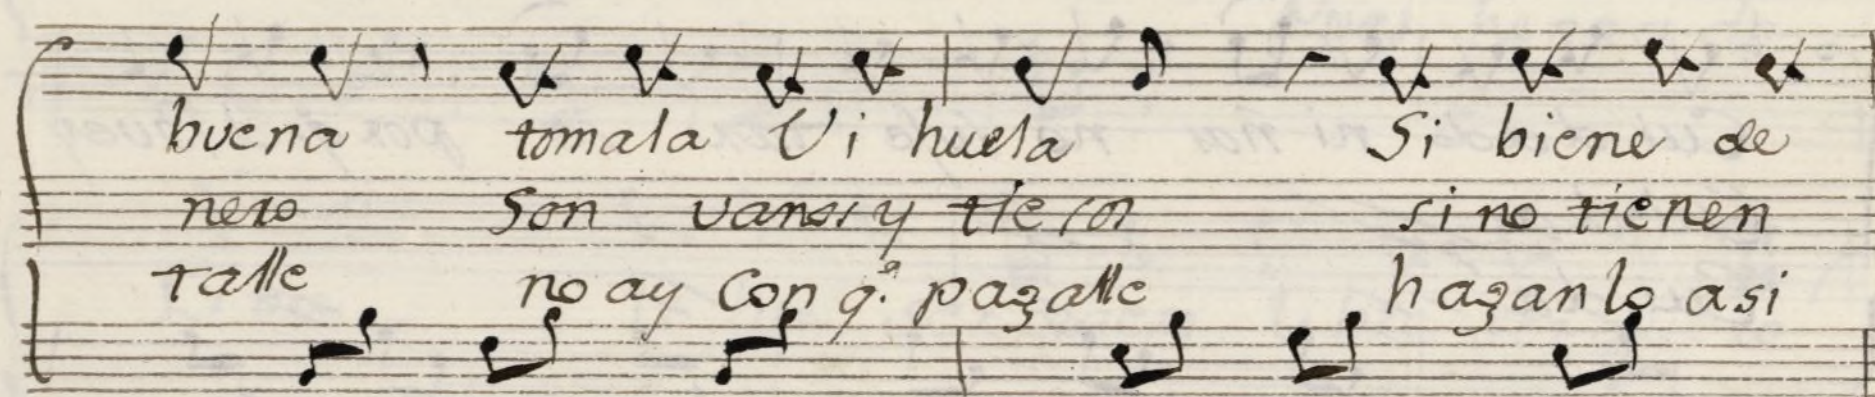 buena tomala Vi huela Si biene de
nero Son vanos y tiesos si no tienen
talle no ay Con q.e pagalle haganlo asi